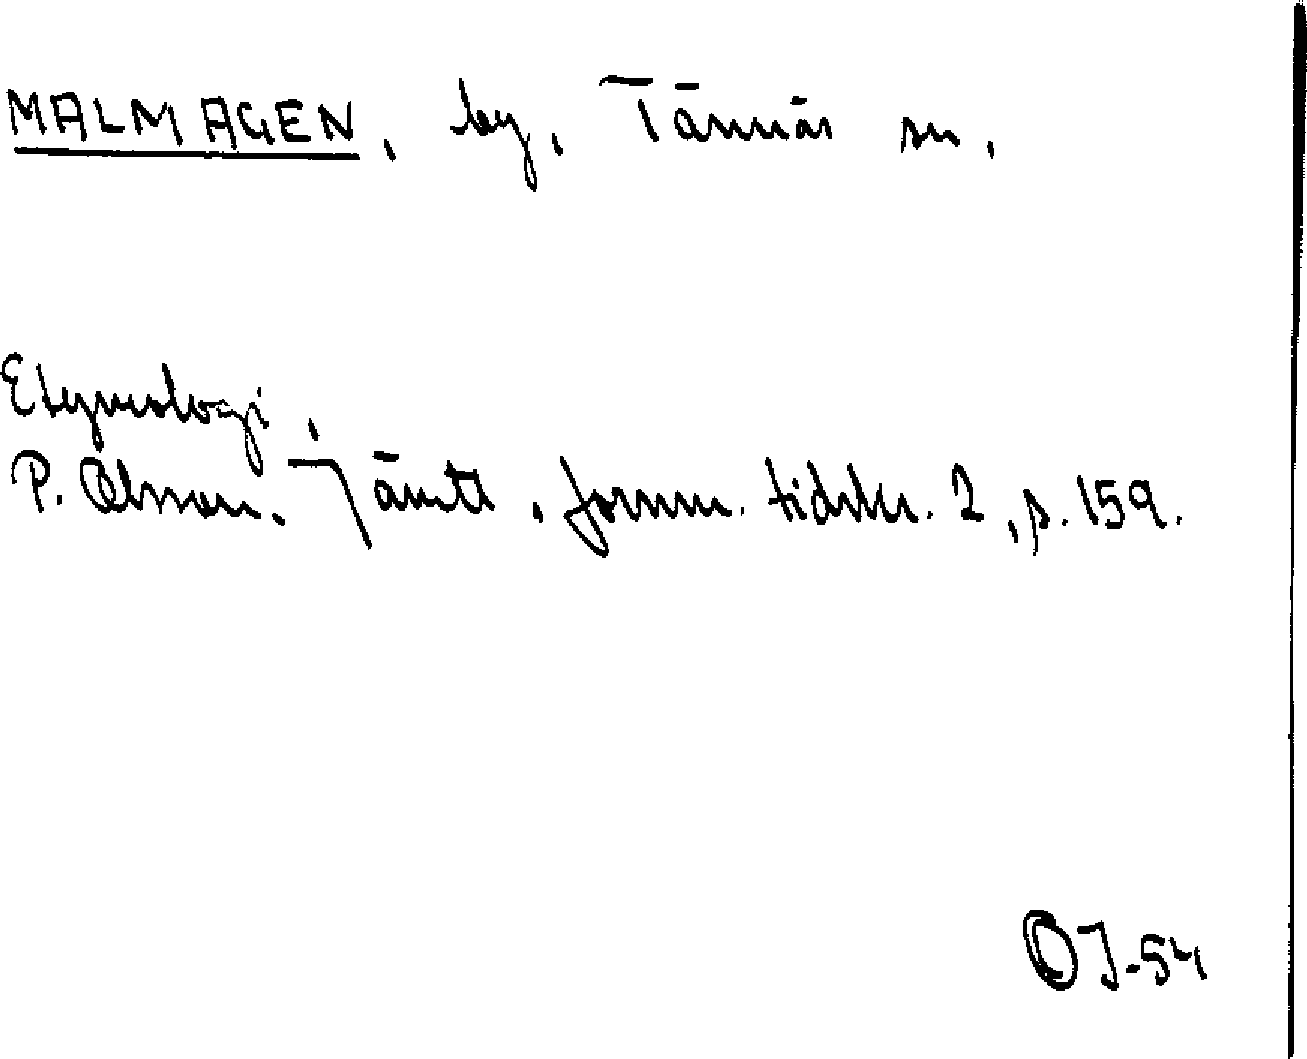 MALMAGEN, by, Tännäs sn,
Etymologi,
P. Olsson. Jämtl, fornm. tidskr. 2, s. 159.
OJ-54